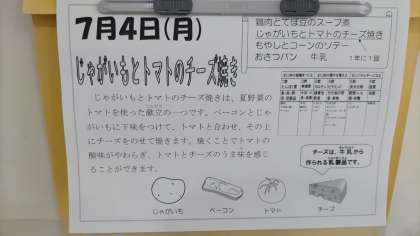 7月4日(月)
鶏肉とてぼ豆のスープ煮
じゃがいもとトマトのチーズ焼き
もやしとコーンのソテー
おさつパン 牛乳 1年に1回
じゃがいもとトマトのチーズ焼き
じゃがいもとトマトのチーズ焼きは、夏野菜の
トマトを使った献立の一つです。ベーコンとじゃ
がいもに下味をつけて、トマトと合わせ、その上
にチーズをのせて焼きます。焼くことでトマトの
酸味がやわらぎ、トマトとチーズのうま味を感じ
ることができます。
チーズは、牛乳から
作られる乳製品です。
じゃがいも
ベーコン
トマト
チーズ